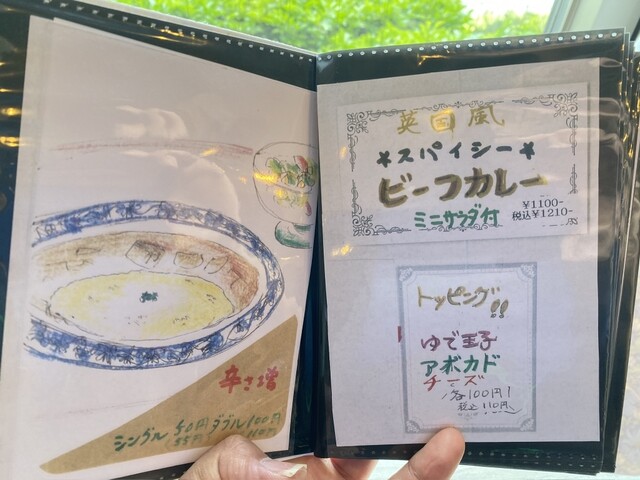 辛さ増
シングル 50円 ダブル 100円
55円 110円
英国風
*スパイシー*
ビーフカレー
ミニサラダ付
¥1100-
税込¥1210-
トッピング!!
ゆで玉子
アボカド
チーズ
各100円
税込 110円